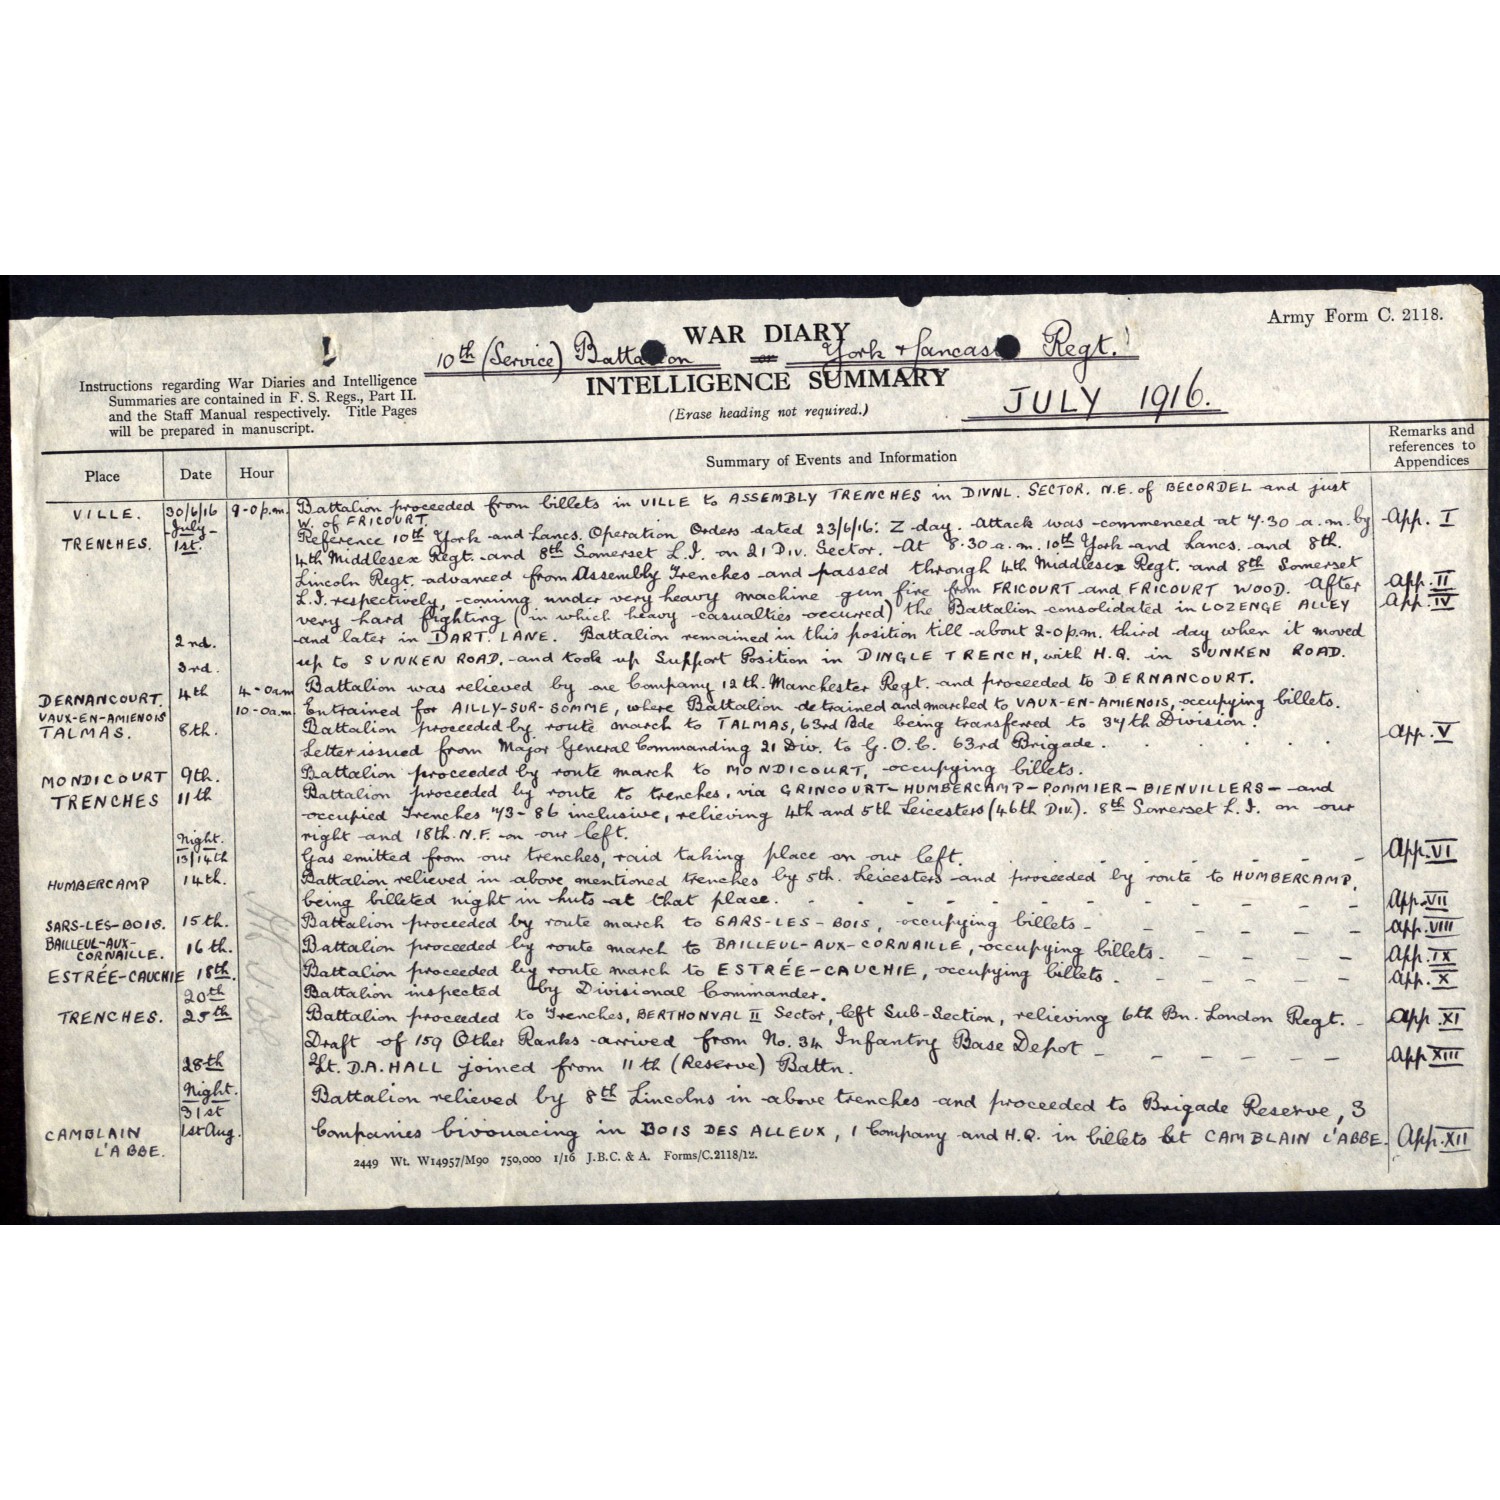 Army Form C. 2118.
WAR DIARY
10th (Service) Battalion or York & Lancaster Regt.
INTELLIGENCE SUMMARY
(Erase heading not required.)
JULY 1916.
Instructions regarding War Diaries and Intelligence
Summaries are contained in F. S. Regs., Part II.
and the Staff Manual respectively. Title Pages
will be prepared in manuscript.
Place Date Hour Summary of Events and Information Remarks and references to Appendices
VILLE. 30/6/16 9-0p.m. Battalion proceeded from billets in VILLE to ASSEMBLY TRENCHES in DIVNL. SECTOR. N.E. of BECORDEL and just
W. of FRICOURT.
TRENCHES. July 1st. Reference 10th York and Lancs. Operation Orders dated 23/6/16: Z day. Attack was commenced at 7.30 a.m. by App. I
4th Middlesex Regt. and 8th Somerset L.I. on 21 Div. Sector. At 8.30 a.m. 10th York and Lancs. and 8th.
Lincoln Regt. advanced from Assembly Trenches and passed through 4th Middlesex Regt. and 8th Somerset
L.I. respectively, coming under very heavy machine gun fire from FRICOURT and FRICOURT WOOD. After App. II
very hard fighting (in which heavy casualties occurred) the Battalion consolidated in LOZENGE ALLEY App. IV
2nd. and later in DART. LANE. Battalion remained in this position till about 2-0p.m. third day when it moved
3rd. up to SUNKEN ROAD. and took up Support Position in DINGLE TRENCH, with H.Q. in SUNKEN ROAD.
DERNANCOURT. 4th 4-0am Battalion was relieved by one Company 12th. Manchester Regt. and proceeded to DERNANCOURT.
VAUX-EN-AMIENOIS 10-0a.m. Entrained for AILLY-SUR-SOMME, where Battalion detrained and marched to VAUX-EN-AMIENOIS, occupying billets.
TALMAS. 8th. Battalion proceeded by route march to TALMAS, 63rd Bde being transferred to 37th Division.
Letter issued from Major General Commanding 21 Div. to G.O.C. 63rd Brigade. App. V
MONDICOURT 9th. Battalion proceeded by route march to MONDICOURT, occupying billets.
TRENCHES 11th Battalion proceeded by route to trenches, via GRINCOURT-HUMBERCAMP-POMMIER-BIENVILLERS- and
occupied Trenches 73-86 inclusive, relieving 4th and 5th Leicesters (46th Div.). 8th Somerset L.I. on our
right and 18th. N.F. on our left.
Night. 13/14th Gas emitted from our trenches, raid taking place on our left. App. VI
HUMBERCAMP 14th. Battalion relieved in above mentioned trenches by 5th. Leicesters and proceeded by route to HUMBERCAMP,
being billeted night in huts at that place. App. VII
SARS-LES-BOIS. 15th. Battalion proceeded by route march to SARS-LES-BOIS, occupying billets App. VIII
BAILLEUL-AUX-CORNAILLE. 16th. Battalion proceeded by route march to BAILLEUL-AUX-CORNAILLE, occupying billets. App. IX
ESTRÉE-CAUCHIE 18th. Battalion proceeded by route march to ESTRÉE-CAUCHIE, occupying billets. App. X
20th Battalion inspected by Divisional Commander.
TRENCHES. 25th Battalion proceeded to Trenches, BERTHONVAL II Sector, left Sub-Section, relieving 6th Bn. London Regt. App XI
Draft of 159 Other Ranks arrived from No. 34 Infantry Base Depot App XIII
28th 2/Lt. D.A. HALL joined from 11th (Reserve) Battn.
Night. 31st Battalion relieved by 8th Lincolns in above trenches and proceeded to Brigade Reserve, 3
CAMBLAIN L'ABBE. 1st Aug. Companies bivouacing in BOIS DES ALLEUX, 1 Company and H.Q. in billets at CAMBLAIN L'ABBE. App. XII
2449 Wt. W14957/M90 750,000 1/16 J.B.C. & A. Forms/C.2118/12.